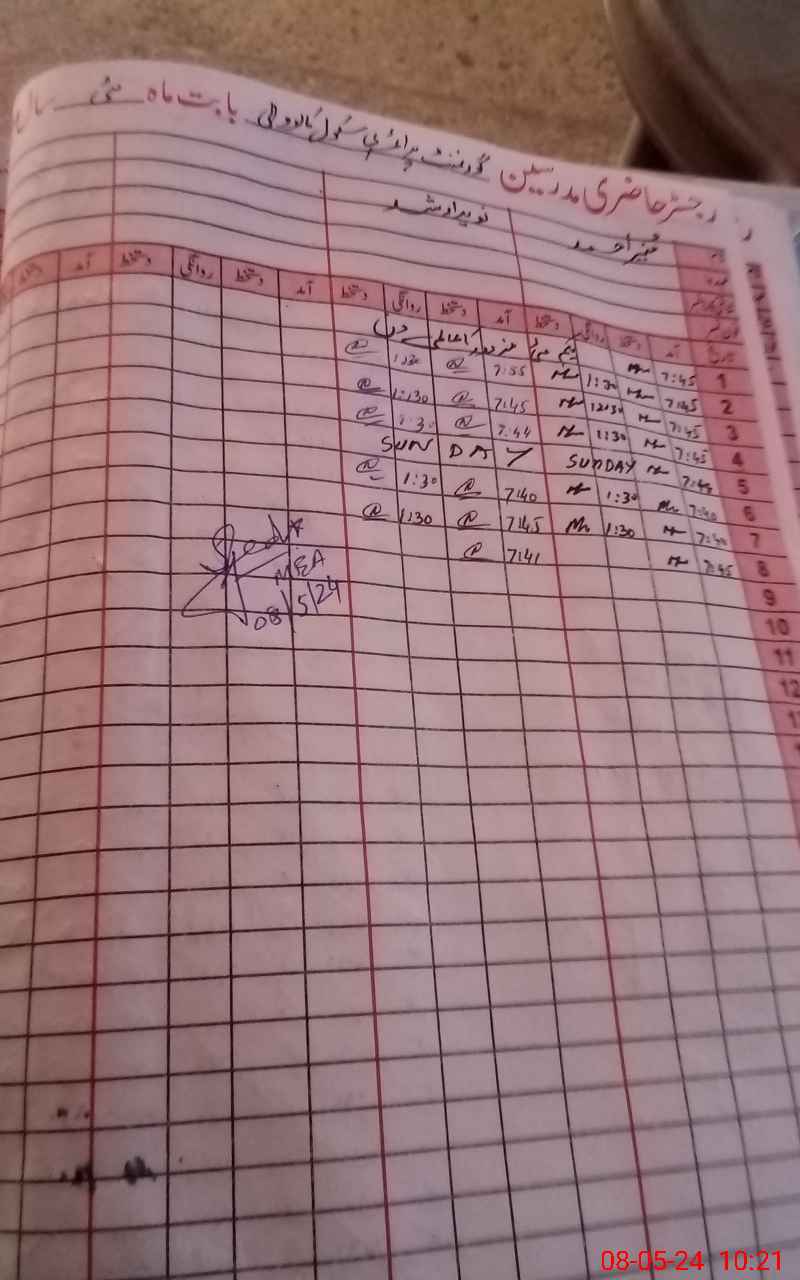 رجسٹر حاضری مدرسین گورنمنٹ پرائمری سکول بابت ماہ مئی سال
نوید ارشد
آمد دستخط روانگی دستخط آمد دستخط روانگی دستخط آمد دستخط روانگی دستخط آمد دستخط
تاریخ
1 7:45 یکم مئی مزدور عالمی دن
2 7:45 1:30 7:55 1:30
3 7:45 12:30 7:45 1:30
4 7:45 1:30 7:44 1:30
5 SUNDAY SUNDAY
6 7:40 1:30 7:40 1:30
7 7:40 1:30 7:45 1:30
8 7:45 7:41
9
10
11
12
MEA
08/5/24
08-05-24 10:21